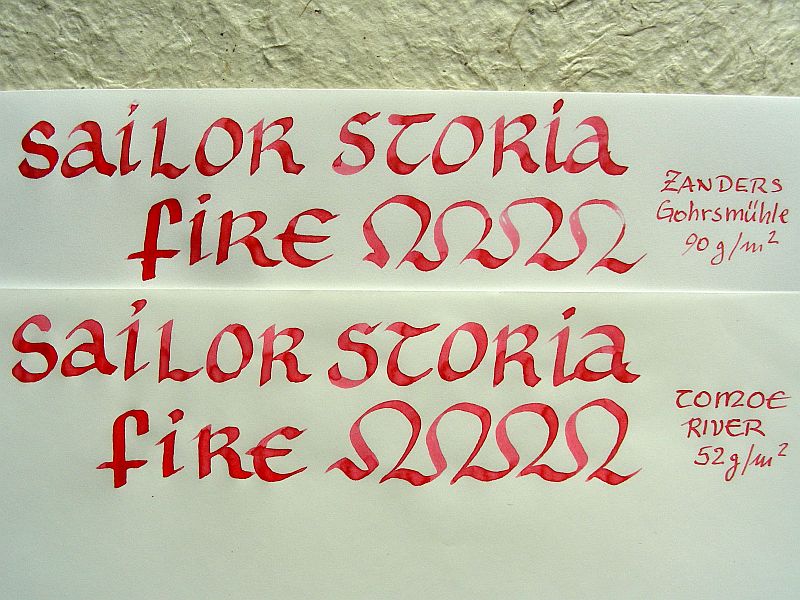 Sailor Storia
fire
ZANDERS
Gohrsmühle
90 g/m²
Sailor Storia
fire
TOMOE
RIVER
52 g/m²